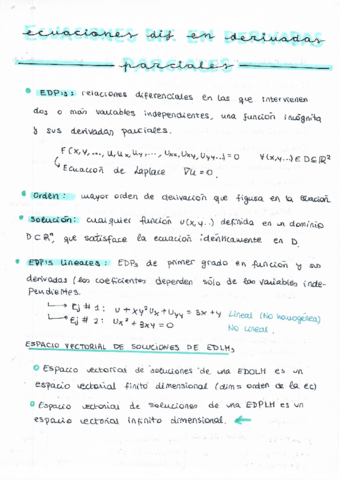 ecuaciones dif en derivadas
parciales
EDP's: relaciones diferenciales en las que intervienen
dos o más variables independientes, una función incógnita
y sus derivadas parciales.
F(x,y,..., u, ux, uy,..., uxx, uxy, uyy...)=0 ∀(x,y...)∈D⊆ℝ²
Ecuación de Laplace ∇u=0.
Orden: mayor orden de derivación que figura en la ecuación
Solución: cualquier función u(x,y...) definida en un dominio
D⊂ℝⁿ, que satisface la ecuación idénticamente en D.
EDP's Lineales: EDPs de primer grado en función y sus
derivadas (los coeficientes dependen sólo de las variables inde-
pendientes.
Ej #1: u+xy²ux+uyy=3x+y Lineal (No homogénea)
Ej #2: ux²+3xy=0 No lineal.
ESPACIO VECTORIAL DE SOLUCIONES DE EDLH,
Espacio vectorial de soluciones de una EDOLH es un
espacio vectorial finito dimensional (dim=orden de la ec)
Espacio vectorial de soluciones de una EDPLH es un
espacio vectorial infinito dimensional.